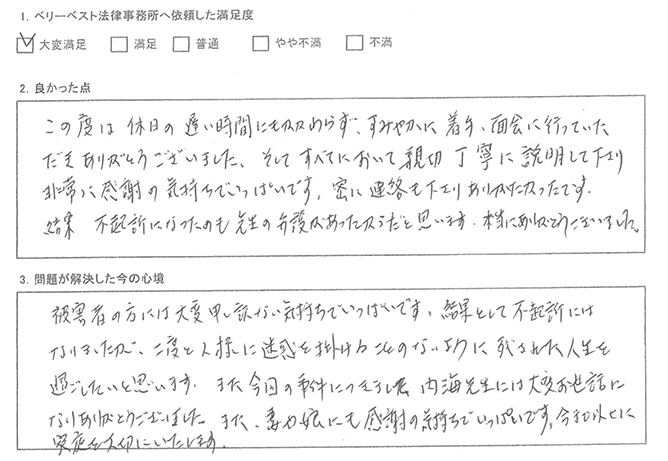 1. ベリーベスト法律事務所へ依頼した満足度
大変満足 満足 普通 やや不満 不満
2. 良かった点
この度は 休日の 遅い時間にも以わらず、すみやかに 着手、面会に行っていた
だき ありがとうございました、そして すべてにおいて 親切 丁寧に 説明して下さり
非常に 感謝の気持ちでいっぱいです。密に 連絡も下さり ありがたかったです。
結果 不起訴になったのも 先生の弁護があったからだと思います。本当にありがとうございました。
3. 問題が解決した今の心境
被害者の方には大変申し訳ない気持ちでいっぱいです、結果として不起訴には
なりましたが、二度と人様に迷惑を掛けることのないように 残された人生を
過ごしたいと思います。また今回の事件につきまして、内海先生には大変お世話に
なりありがとうございました。また、妻や娘にも感謝の気持ちでいっぱいです。今まで以上に
家庭を大切にいたします。